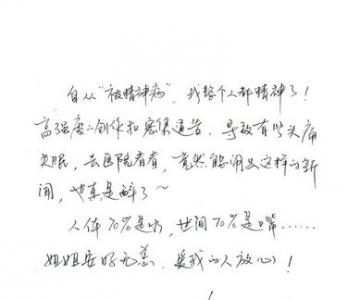 自从“被精神病”，我整个人都精神了！
高强度的创作和密集通告，导致有些头痛
失眠，去医院看看，竟然能闹出这样的新
闻，也真是醉了～
人体70%是水，世间70%是嘴……
姐姐安好无恙，爱我的人放心！
！